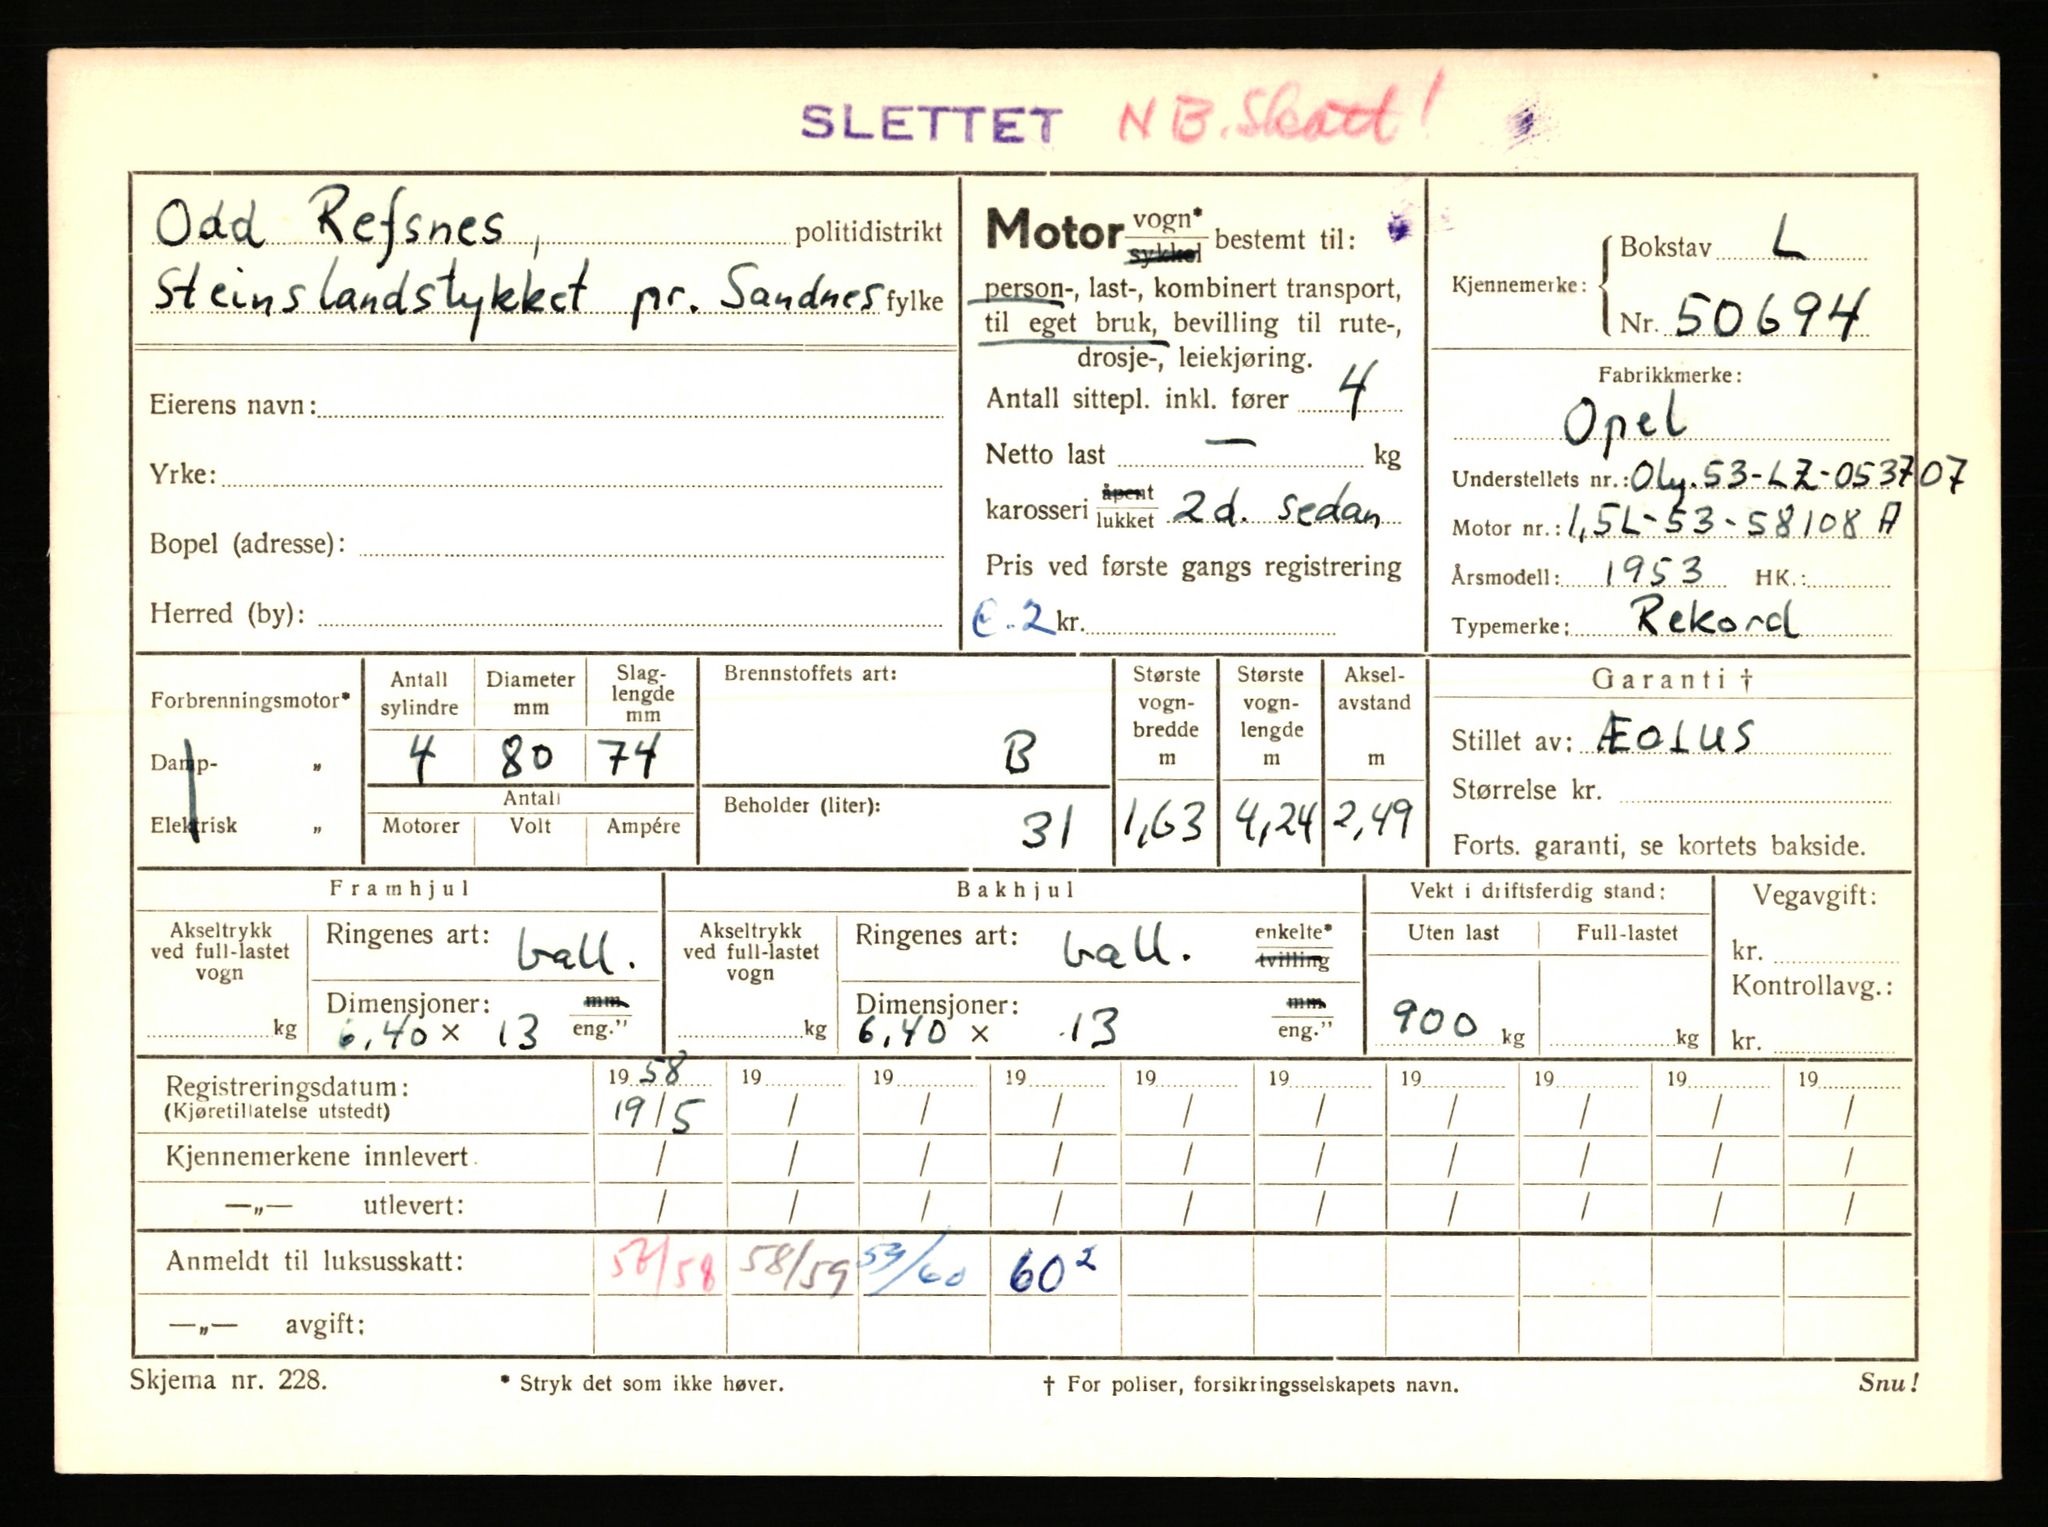 SLETTET NB. Skatt!
Odd Refsnes, politidistrikt
Steinslandstykket pr. Sandnes fylke
Eierens navn:
Yrke:
Bopel (adresse):
Herred (by):
Motor vogn* sykkel bestemt til:
person-, last-, kombinert transport,
til eget bruk, bevilling til rute-,
drosje-, leiekjøring.
Antall sittepl. inkl. fører 4
Netto last — kg
karosseri åpent lukket 2d. sedan
Pris ved første gangs registrering
e.2 kr.
Kjennemerke: Bokstav L
Nr. 50694
Fabrikkmerke:
Opel
Understellets nr.: Oly.53-LZ-053707
Motor nr.: 1,5L-53-58108 A
Årsmodell: 1953 HK.:
Typemerke: Rekord
Forbrenningsmotor*
Damp- „
Elektrisk „
Antall sylindre Diameter mm Slag-lengde mm
4 80 74
Antall
Motorer Volt Ampére
Brennstoffets art:
B
Beholder (liter):
31
Største vogn-bredde m Største vogn-lengde m Aksel-avstand m
1,63 4,24 2,49
Garanti †
Stillet av: ÆOLUS
Størrelse kr.
Forts. garanti, se kortets bakside.
Framhjul
Akseltrykk ved full-lastet vogn
kg
Ringenes art: ball.
Dimensjoner: mm
6,40 × 13 eng."
Bakhjul
Akseltrykk ved full-lastet vogn
kg
Ringenes art: ball. enkelte* tvilling
Dimensjoner: mm
6,40 × 13 eng."
Vekt i driftsferdig stand:
Uten last Full-lastet
900 kg kg
Vegavgift:
kr.
Kontrollavg.:
kr.
Registreringsdatum: 19 58 19 19 19 19 19 19 19 19 19
(Kjøretillatelse utstedt) 19/5 / / / / / / / / /
Kjennemerkene innlevert / / / / / / / / / /
—„— utlevert: / / / / / / / / / /
Anmeldt til luksusskatt: 57/58 58/59 59/60 60²
—„— avgift:
Skjema nr. 228. * Stryk det som ikke høver. † For poliser, forsikringsselskapets navn. Snu!